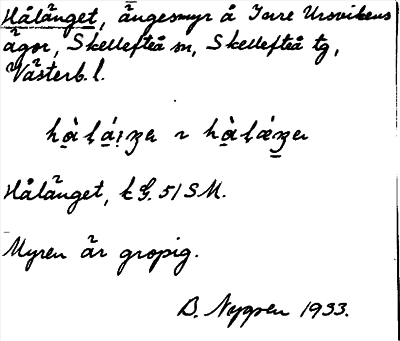 Hålänget, ängesmyr å Inre Ursvikens
ägor, Skellefteå sn, Skellefteå tg,
Västerb. l.
Hålänget, 51 SM.
Myren är gropig.
B. Nygren 1933.